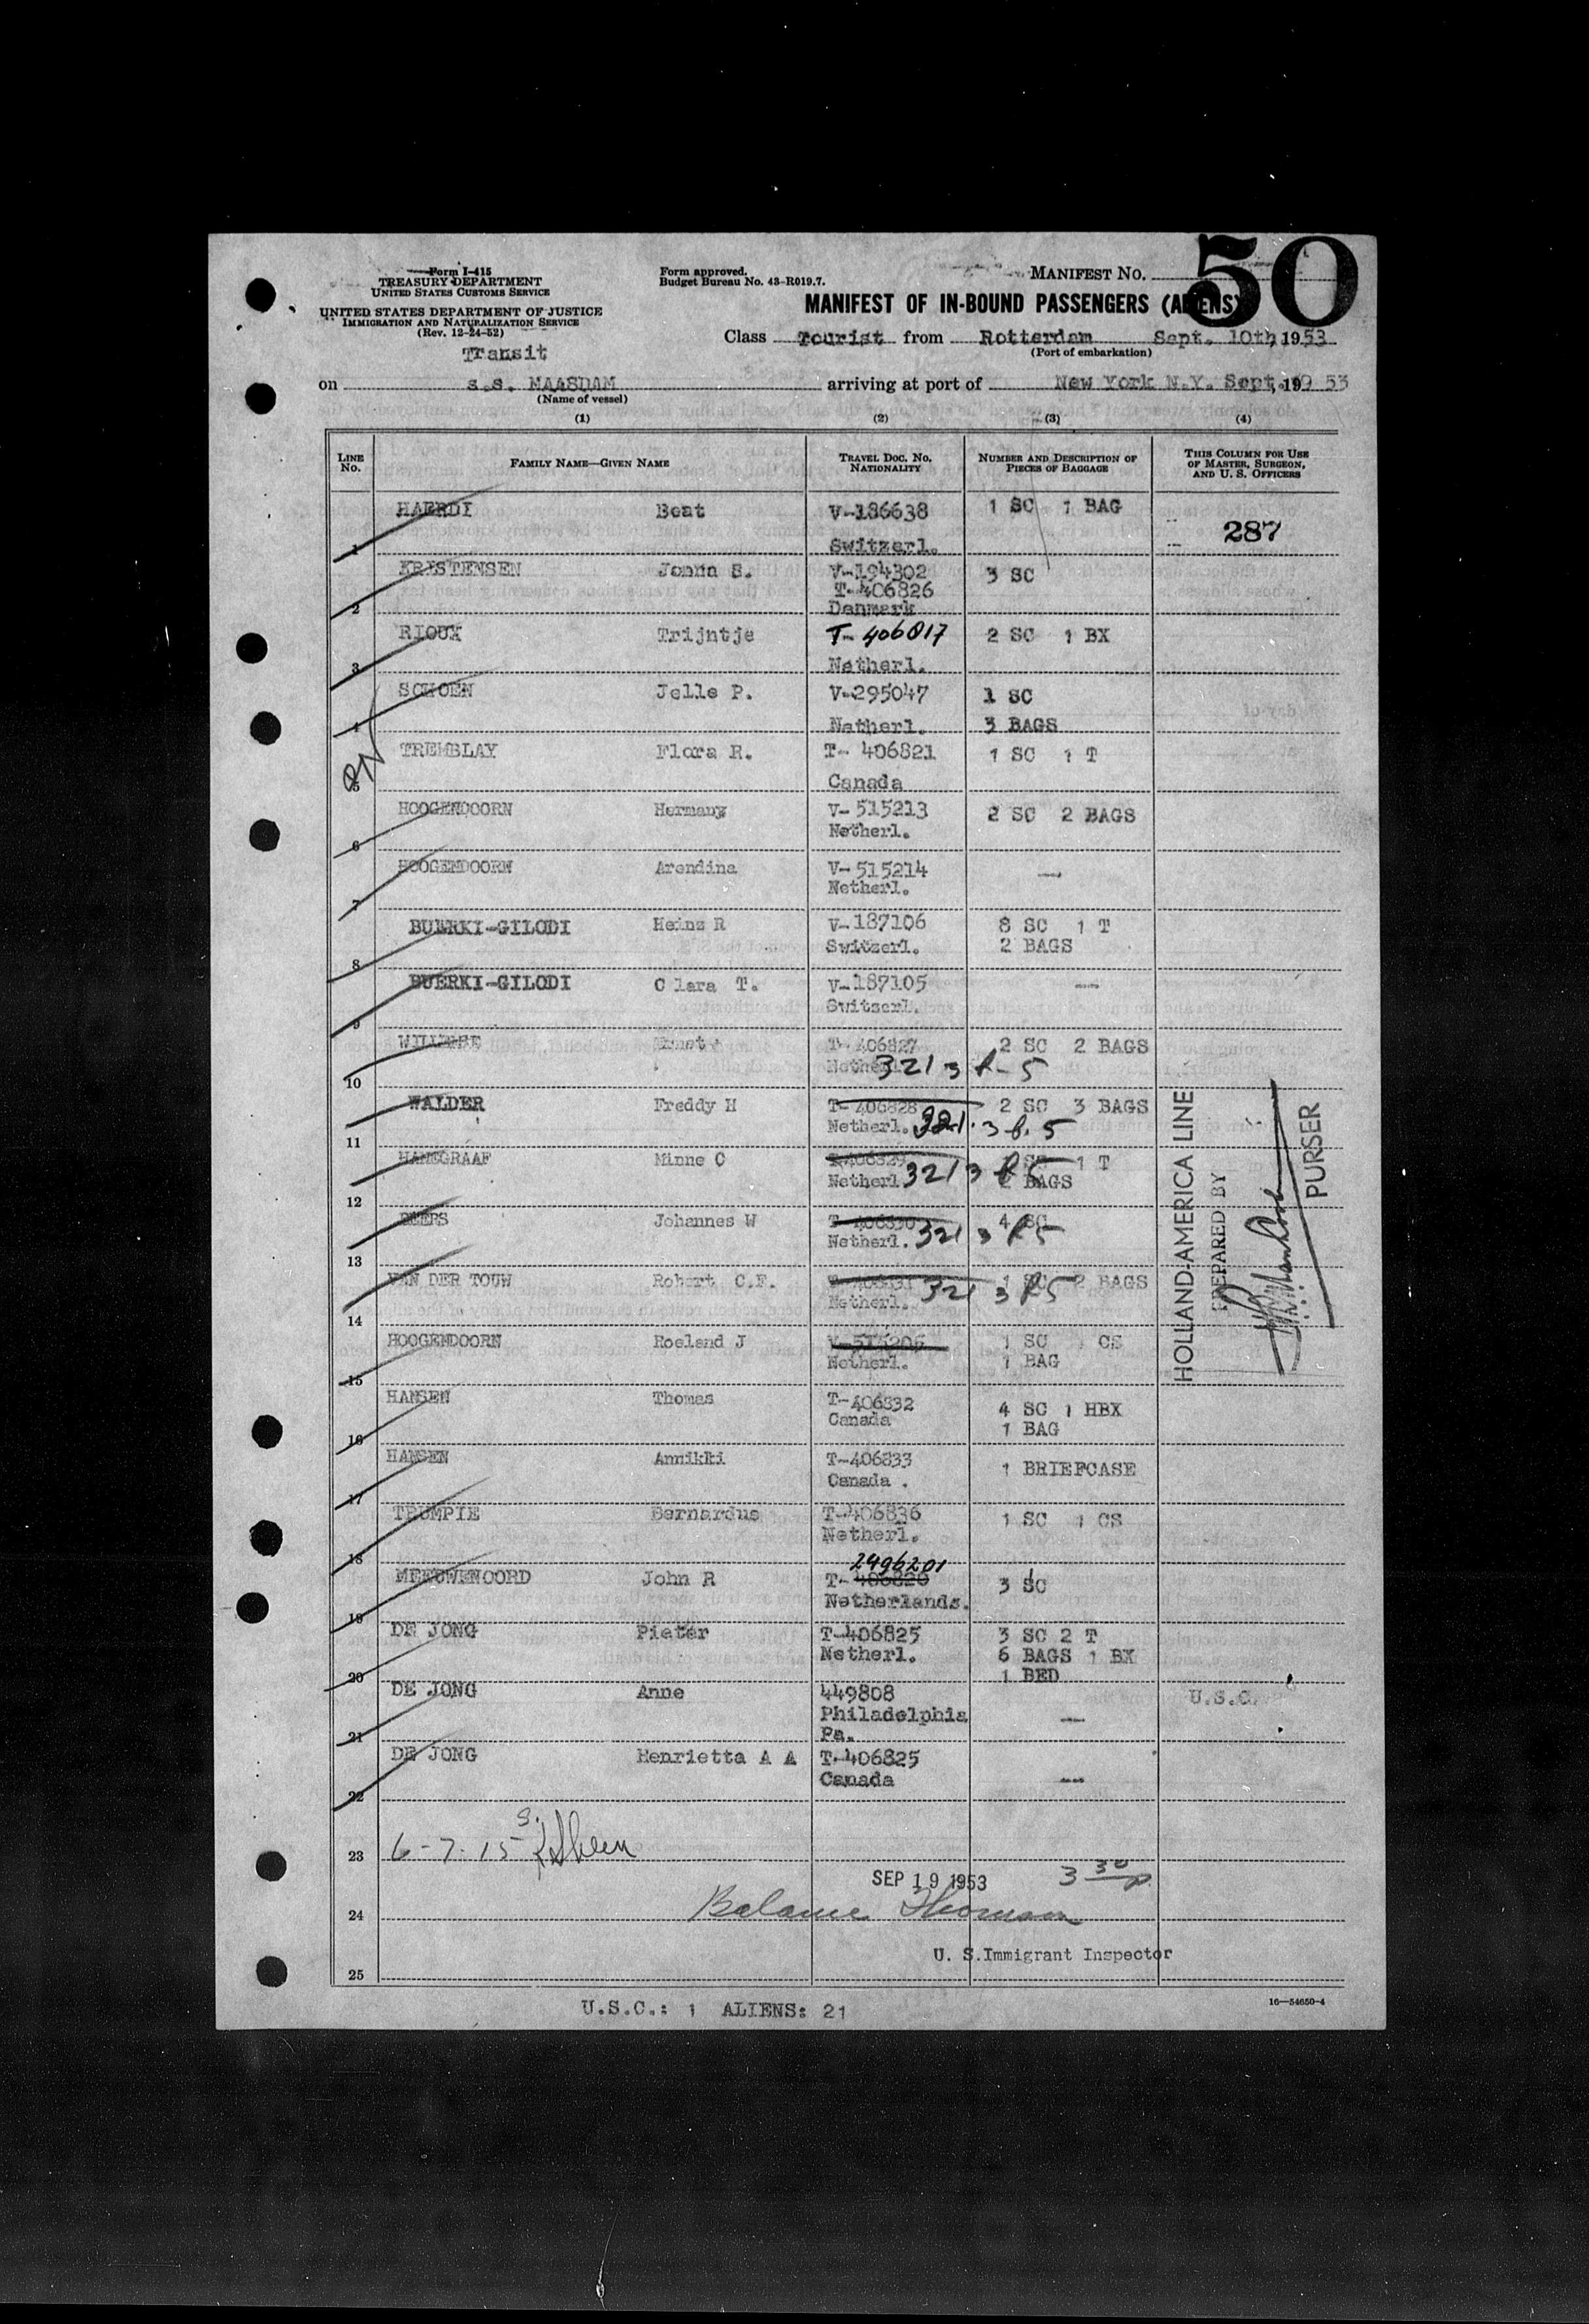 Form I-415
TREASURY DEPARTMENT
UNITED STATES CUSTOMS SERVICE
UNITED STATES DEPARTMENT OF JUSTICE
IMMIGRATION AND NATURALIZATION SERVICE
(Rev. 12-24-52)
Transit
Form approved.
Budget Bureau No. 43-R019.7.
MANIFEST NO. 50
MANIFEST OF IN-BOUND PASSENGERS (ALIENS)
Class Tourist from Rotterdam Sept. 10th, 1953
(Port of embarkation)
on s.s. MAASDAM arriving at port of New York N.Y. Sept. 19 53
(Name of vessel)
(1) (2) (3) (4)
LINE NO. FAMILY NAME—GIVEN NAME TRAVEL DOC. NO. NATIONALITY NUMBER AND DESCRIPTION OF PIECES OF BAGGAGE THIS COLUMN FOR USE OF MASTER, SURGEON, AND U. S. OFFICERS
1 HAERDI Beat V-186638 1 SC 1 BAG 287
Switzerl.
2 KRISTENSEN Joanna S. V-194302 3 SC
T-406826
Denmark
3 RIOUX Trijntje T-406817 2 SC 1 BX
Netherl.
4 SCHOEN Jelle P. V-295047 1 SC
Netherl. 3 BAGS
5 TREMBLAY Flora R. T- 406821 1 SC 1 T
Canada
6 HOOGENDOORN Hermany V-515213 2 SC 2 BAGS
Netherl.
7 HOOGENDOORN Arendina V-515214 —
Netherl.
8 BUERKI-GILODI Heinz R V-187106 8 SC 1 T
Switzerl. 2 BAGS
9 BUERKI-GILODI Clara T. V-187105 —
Switzerl.
10 WILLEMSE T-406827 2 SC 2 BAGS
Netherl. 321 3 R-5
11 WALDER Freddy H T-406828 2 SC 3 BAGS
Netherl. 321.3 R.5
12 HANEGRAAF Minne C T-406829 SC 1 T
Netherl. 321 3 R5 BAGS
13 BEERS Johannes W T-406830 4 SC
Netherl. 321 3 R5
14 VAN DER TOUW Robert C.F. T-406831 1 SC 2 BAGS
Netherl. 321 3 R5
15 HOOGENDOORN Roeland J V-515206 1 SC 1 CS
Netherl. 1 BAG
16 HANSEN Thomas T-406832 4 SC 1 HBX
Canada 1 BAG
17 HANSEN Annikki T-406833 1 BRIEFCASE
Canada .
18 TRUMPIE Bernardus T-406836 1 SC 1 CS
Netherl.
2496201
19 MEEUWENOORD John R T-406820 3 SC
Netherlands.
20 DE JONG Pieter T-406825 3 SC 2 T
Netherl. 6 BAGS 1 BX
1 BED
21 DE JONG Anne 449808 — U.S.C.
Philadelphia
Pa.
22 DE JONG Henrietta A A T-406825 —
Canada
HOLLAND-AMERICA LINE
PREPARED BY
PURSER
23 6-7-15
SEP 19 1953 3 30 p.
24 Balance Thomson
U. S. Immigrant Inspector
25
U.S.C.: 1 ALIENS: 21
16—54650-4